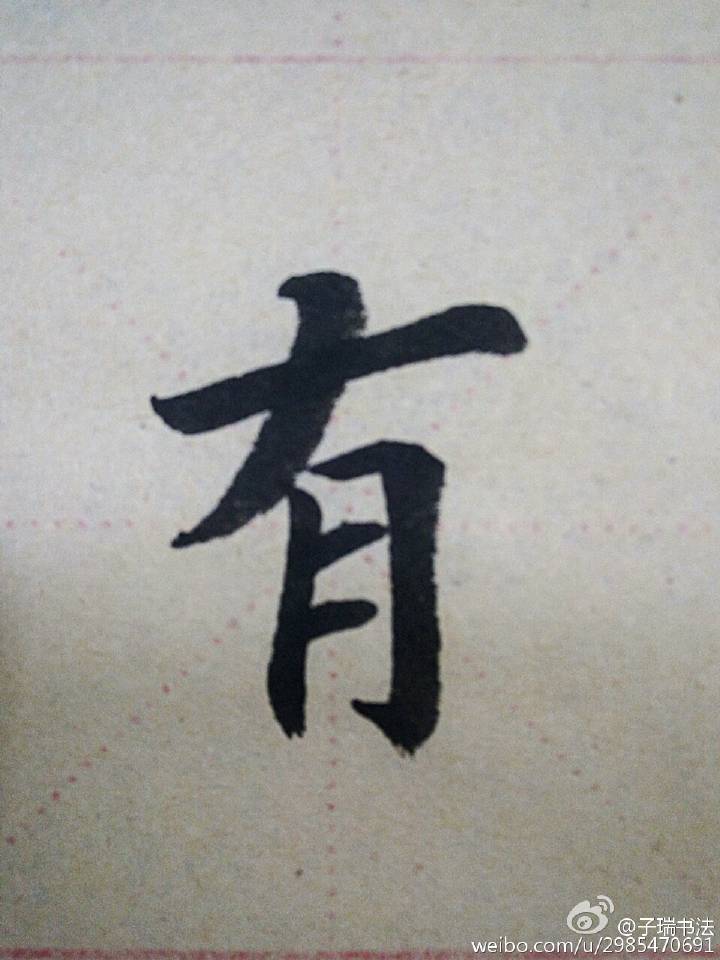 有
@子瑞书法
weibo.com/u/2985470691